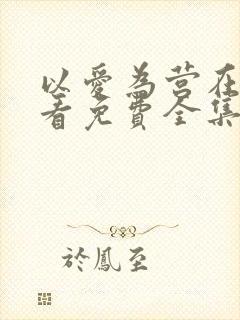 以愛為营在
看免費全集
於鳳至